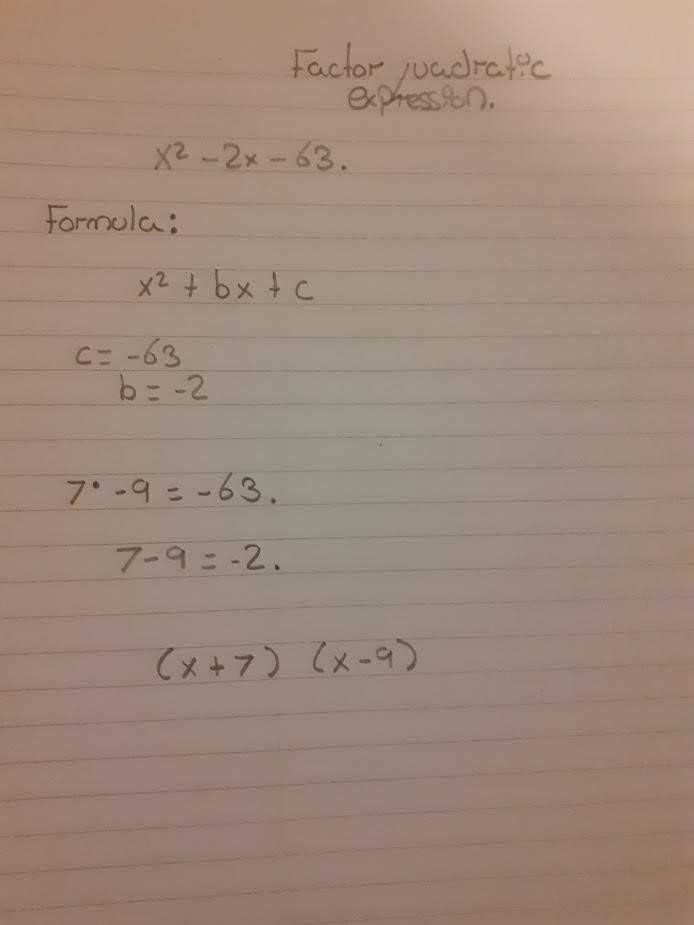 Factor quadratic
expression.
x² - 2x - 63.
Formula:
x² + bx + c
c = -63
b = -2
7· -9 = -63.
7-9 = -2.
(x+7) (x-9)